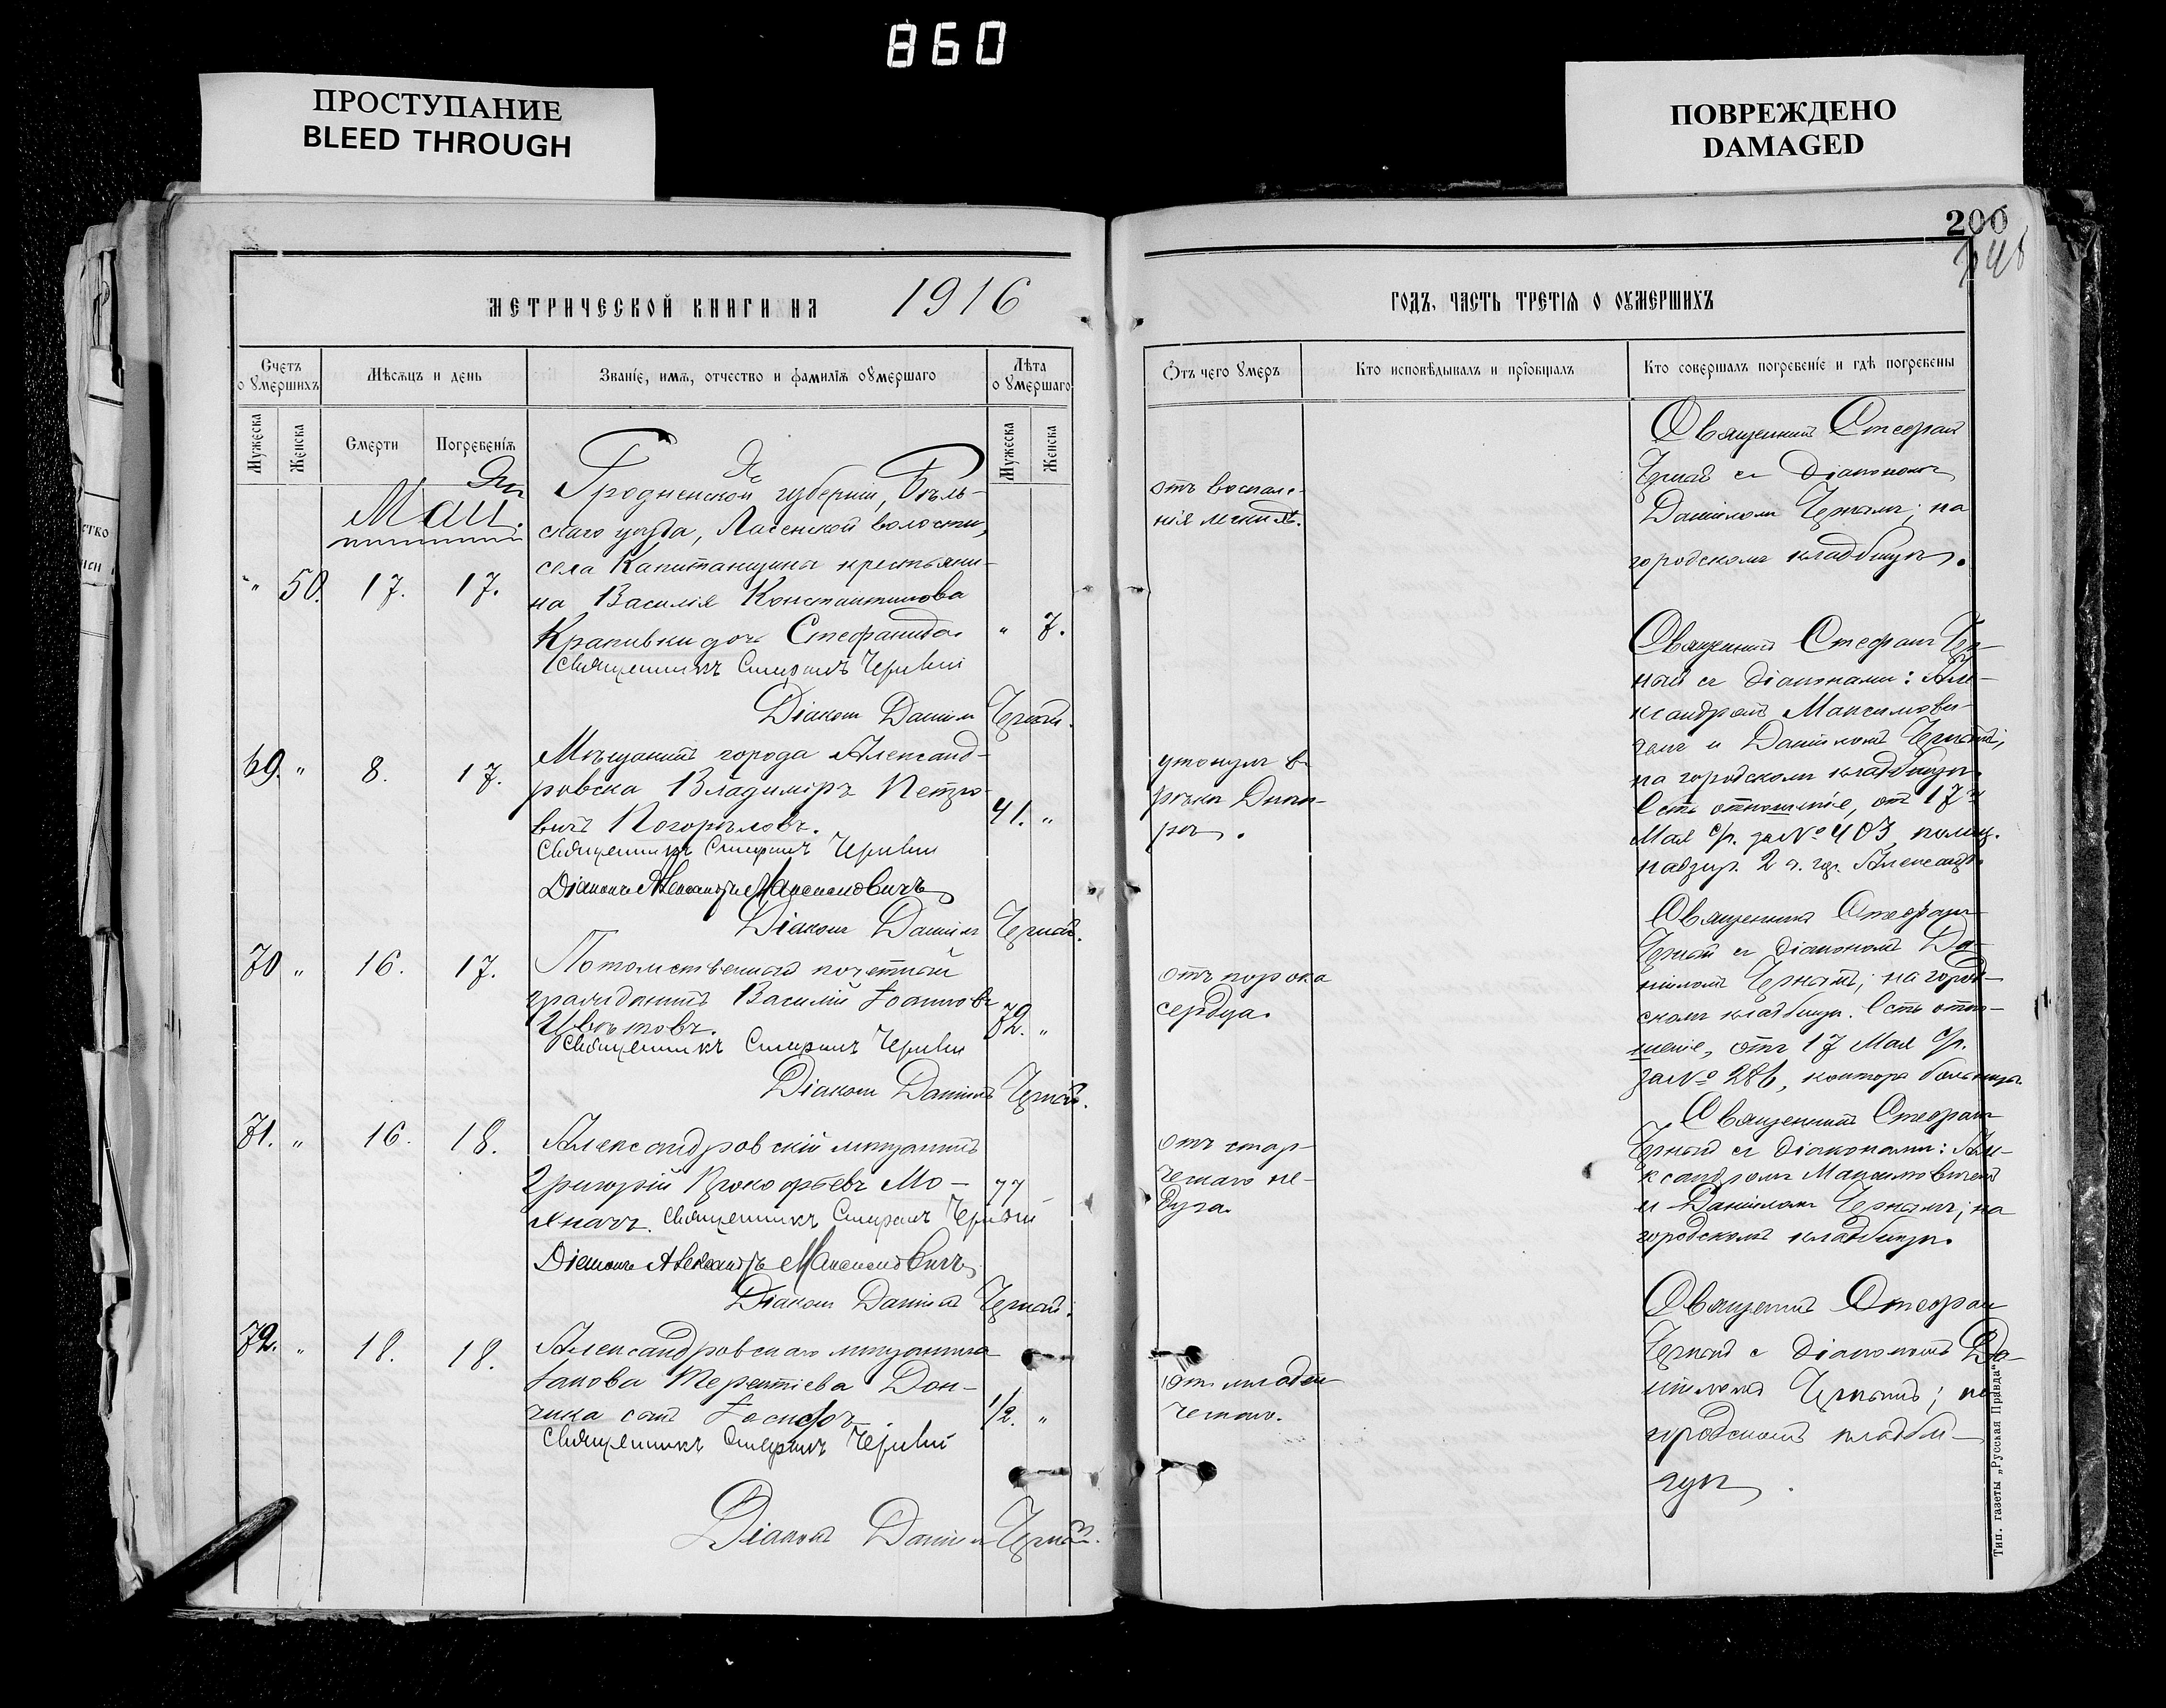 860
ПРОСТУПАНИЕ
BLEED THROUGH
ПОВРЕЖДЕНО
DAMAGED
200
МЕТРИЧЕСКОЙ КНИГИ НА 1916
ГОДЪ, ЧАСТЬ ТРЕТІЯ О ОУМЕРШИХЪ
Счетъ о умершихъ
Мѣсяцъ и день
Званіе, имя, отчество и фамилія оумершаго
Лѣта о умершаго
Отъ чего умеръ
Кто исповѣдывалъ и пріобщалъ
Кто совершалъ погребеніе и гдѣ погребены
Мужеска
Женска
Смерти
Погребенія
Мужеска
Женска
Май.
" 50. 17. 17.
Гродненской губерніи, Бѣль-
скаго уѣзда, волости,
села Капитанщина крестьяни-
на Василія Константинова
Крапивки дочь Стефанида. " 7.
Священникъ Стефанъ Черный
Діаконъ Даніилъ Черный.
отъ воспале-
нія легкихъ.
Священникъ Стефанъ
Черный съ діакономъ
Даніиломъ Чернымъ; на
городскомъ кладбищѣ.
69. " 8. 17.
Мѣщанинъ города Александ-
ровска Владиміръ Петро-
вичъ Погорѣловъ. 41. "
Священникъ Стефанъ Черный
Діаконъ Александръ Максимовичъ
Діаконъ Даніилъ Черный.
утонулъ въ
рѣкѣ Днѣп-
рѣ.
Священникъ Стефанъ Чер-
ный съ діаконами: Але-
ксандромъ Максимови-
чемъ и Даніиломъ Чернымъ;
на городскомъ кладбищѣ.
Есть отношеніе, отъ 17го
Мая с/г. за № 403, полиц.
надзир. 2 ч. гор. Александр.
70 " 16. 17.
Потомственный почетный
гражданинъ Василій Іоанновъ
Цвѣтовъ. 72. "
Священникъ Стефанъ Черный
Діаконъ Даніилъ Черный.
отъ порока
сердца.
Священникъ Стефанъ
Черный съ діакономъ Да-
ніиломъ Чернымъ; на город-
скомъ кладбищѣ. Есть отно-
шеніе, отъ 17 Мая с/г.
за № 286, контора больницы
71. " 16. 18.
Александровскій мѣщанинъ
Григорій Прокофьевъ Мо- 77
Священникъ Стефанъ Черный
Діаконъ Александръ Максимовичъ
Діаконъ Даніилъ Черный.
отъ стар-
ческаго не-
дуга.
Священникъ Стефанъ
Черный съ діаконами: Але-
ксандромъ Максимовичемъ
и Даніиломъ Чернымъ; на
городскомъ кладбищѣ.
72. " 18. 18.
Александровскаго мѣщанина
Іакова Терентіева Дон-
чика сынъ Іосифъ. 1/2. "
Священникъ Стефанъ Черный
Діаконъ Даніилъ Черный.
отъ младен
ческаго.
Священникъ Стефанъ
Черный съ діакономъ Да-
ніиломъ Чернымъ; на
городскомъ кладби-
щѣ.
Тип. газеты „Русская Правда"